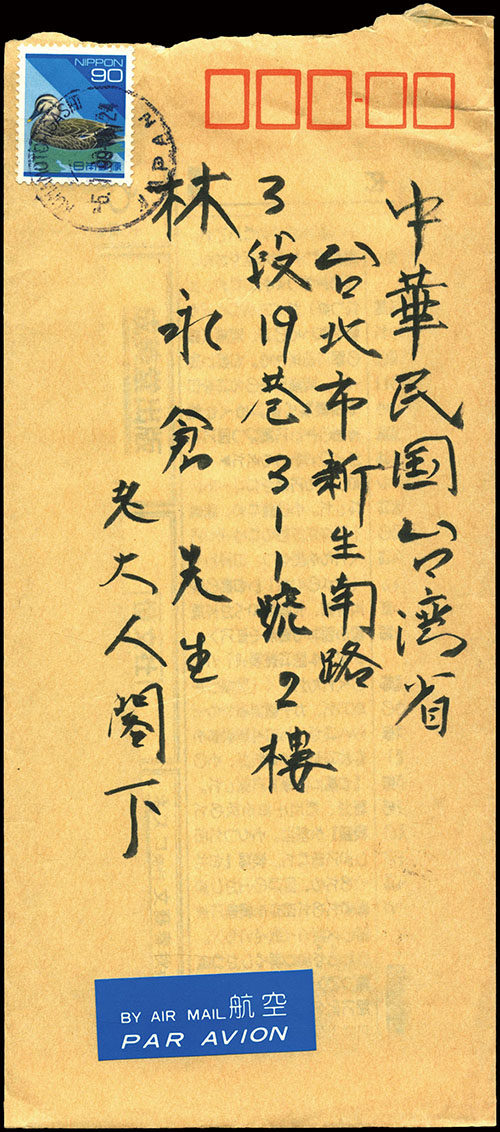 NIPPON
90
日本郵便
中華民国台湾省
台北市新生南路
3段19巷3-1號2樓
林永倉先生
老大人閣下
BY AIR MAIL 航空
PAR AVION